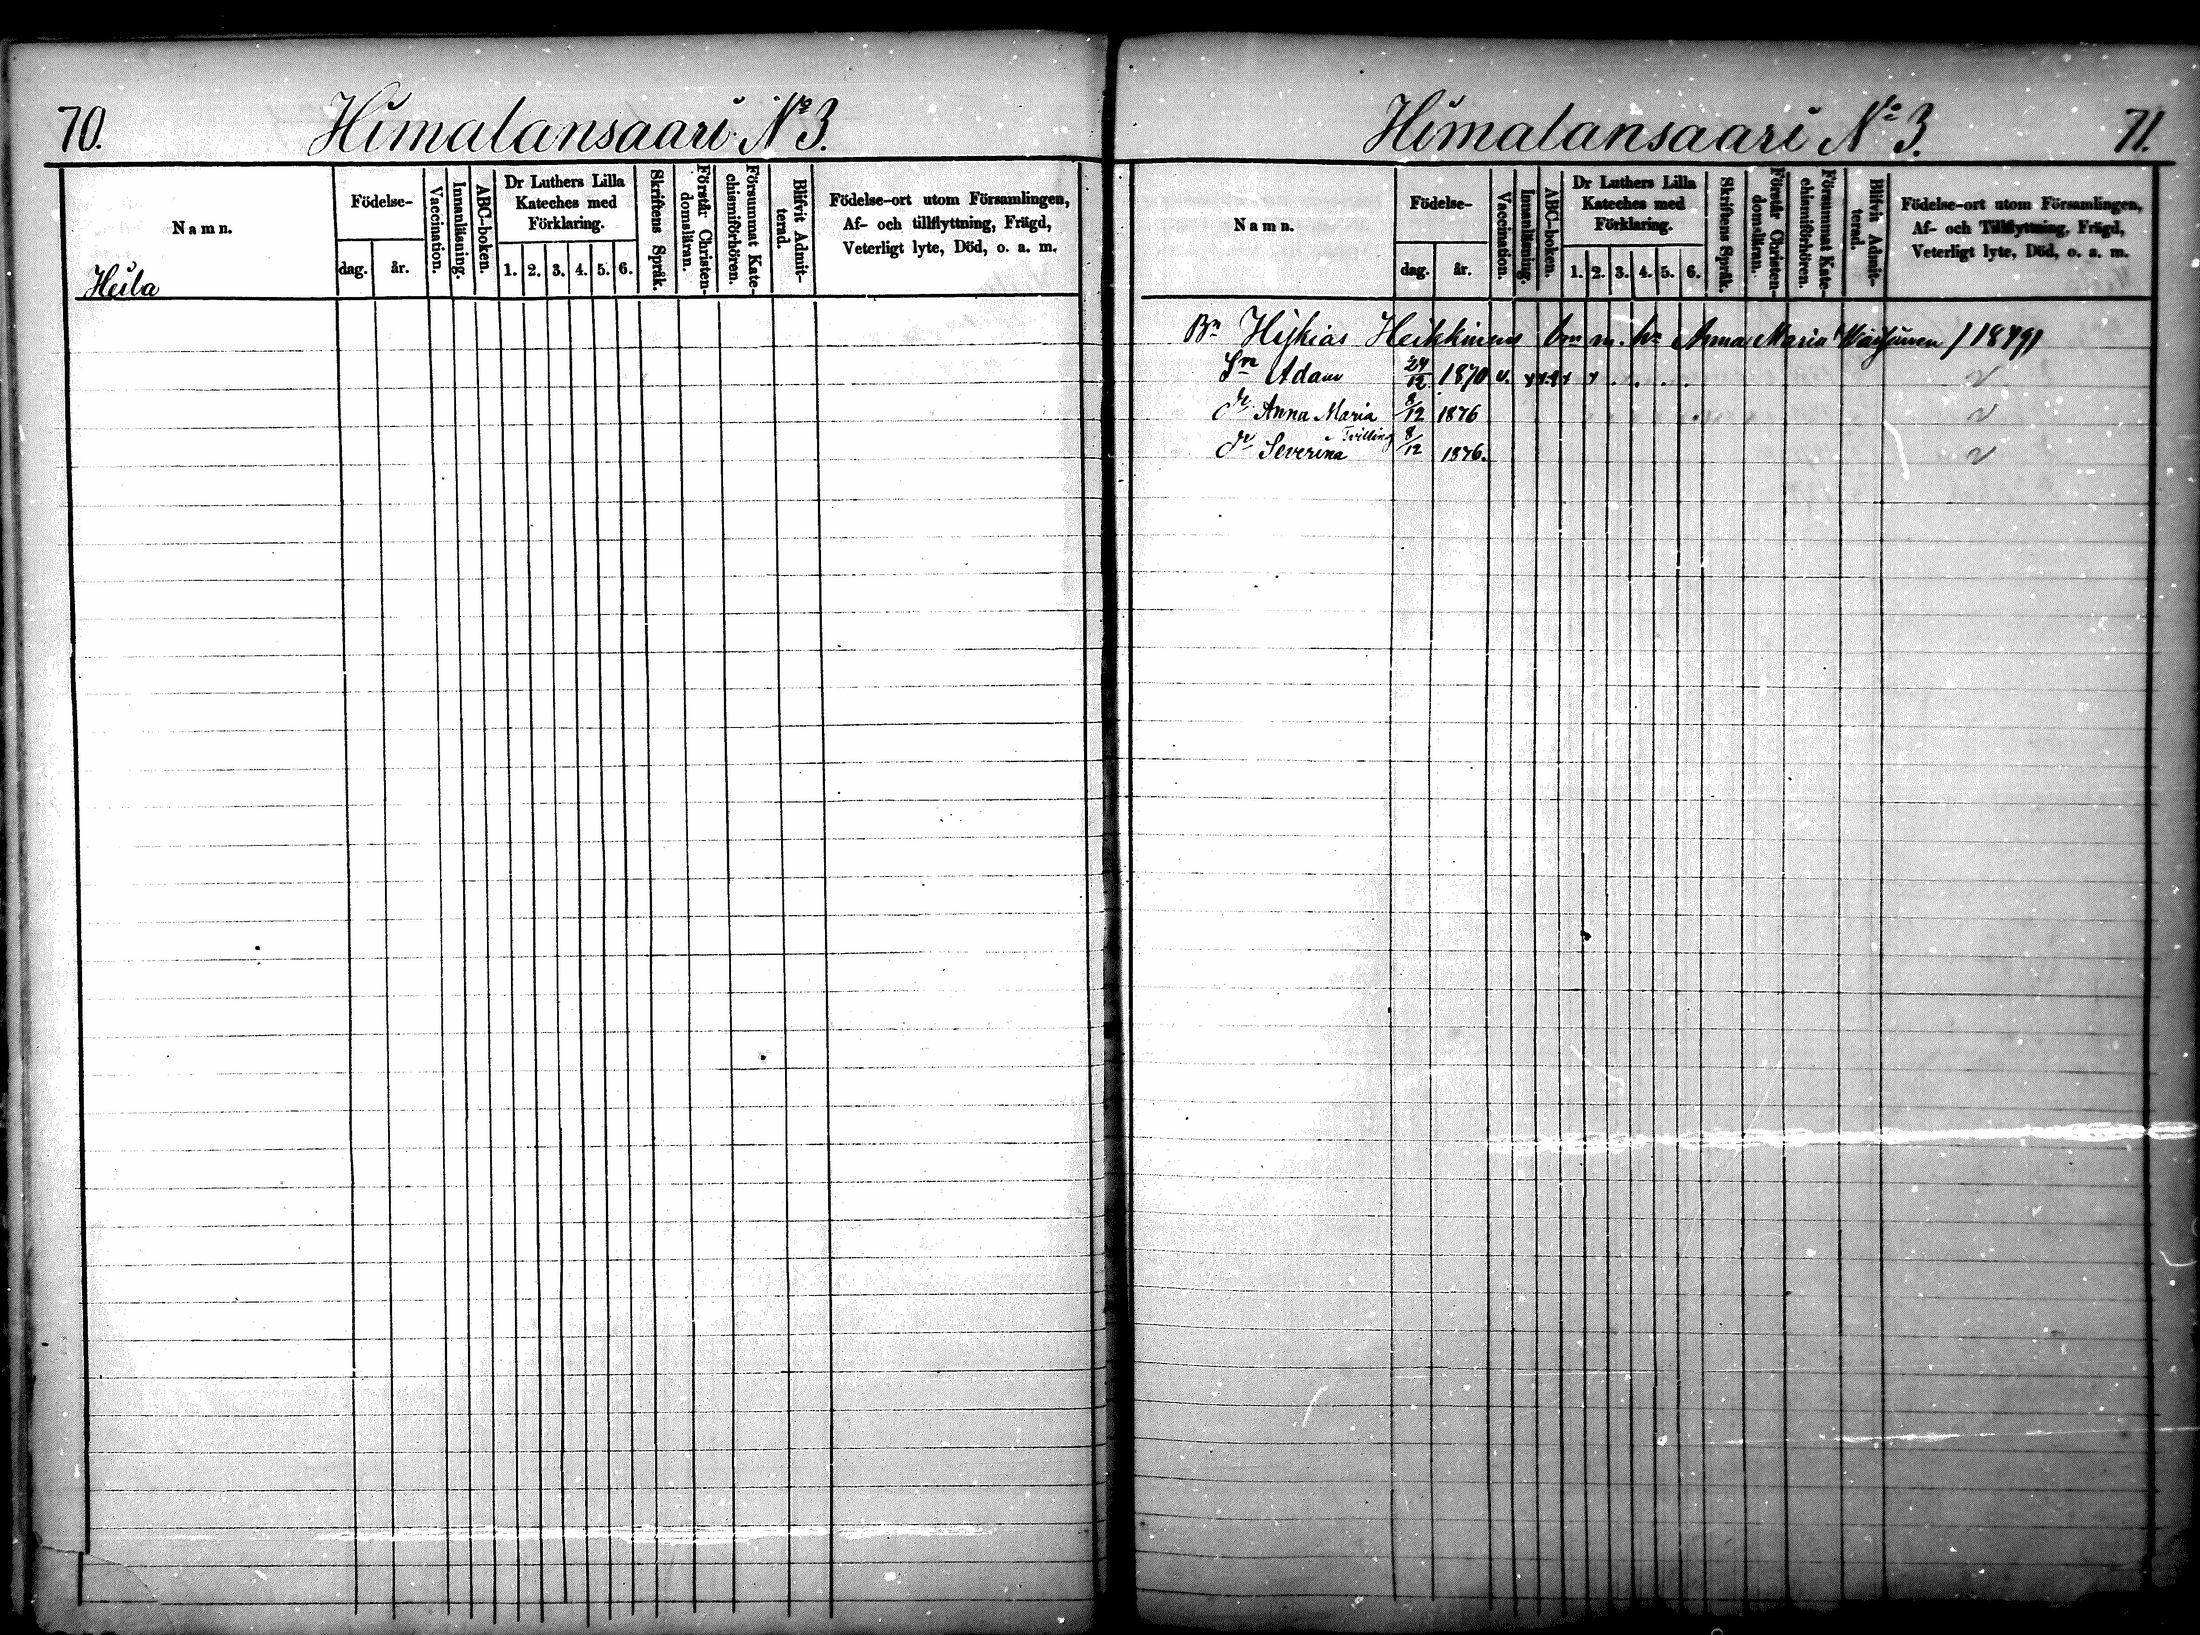 70. Himalansaari № 3.
Namn.
Födelse-
dag. år.
Vaccination.
Innanläsning.
ABC-boken.
Dr Luthers Lilla
Kateches med
Förklaring.
1. 2. 3. 4. 5. 6.
Skriftens Språk.
Förstår Christen-
domsläran.
Försummat Kate-
chismiförhören.
Blifvit Admit-
terad.
Födelse-ort utom Församlingen,
Af- och tillflyttning, Frägd,
Veterligt lyte, Död, o. a. m.
Heila
Himalansaari № 3. 71.
Namn.
Födelse-
dag. år.
Vaccination.
Innanläsning.
ABC-boken.
Dr Luthers Lilla
Kateches med
Förklaring.
1. 2. 3. 4. 5. 6.
Skriftens Språk.
Förstår Christen-
domsläran.
Försummat Kate-
chismiförhören.
Blifvit Admit-
terad.
Födelse-ort utom Församlingen,
Af- och Tillflyttning, Frägd,
Veterligt lyte, Död, o. a. m.
Bn Hiskias Heikkinens m. hu Anna Maria
Sn Adam 24/12 1870 v.
dr Anna Maria 8/12 1876
dr Severina Tvilling 8/12 1876.